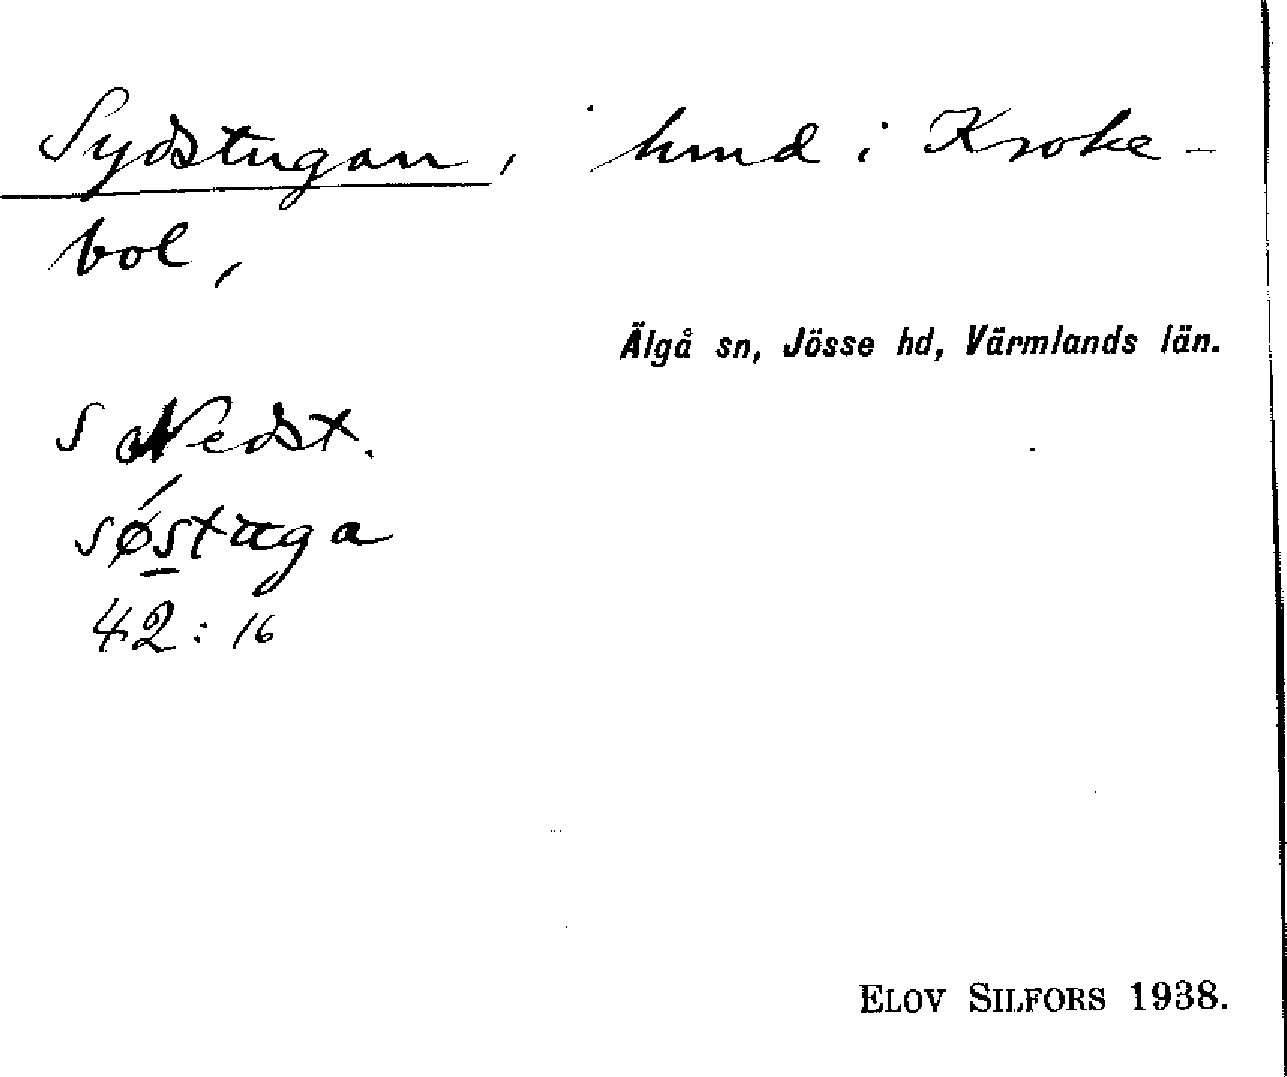 Sydstugan, hmd i Kroke-
bol,
Älgå sn, Jösse hd, Värmlands län.
S Nedst.
søstuga
42:16
ELOV SILFORS 1938.